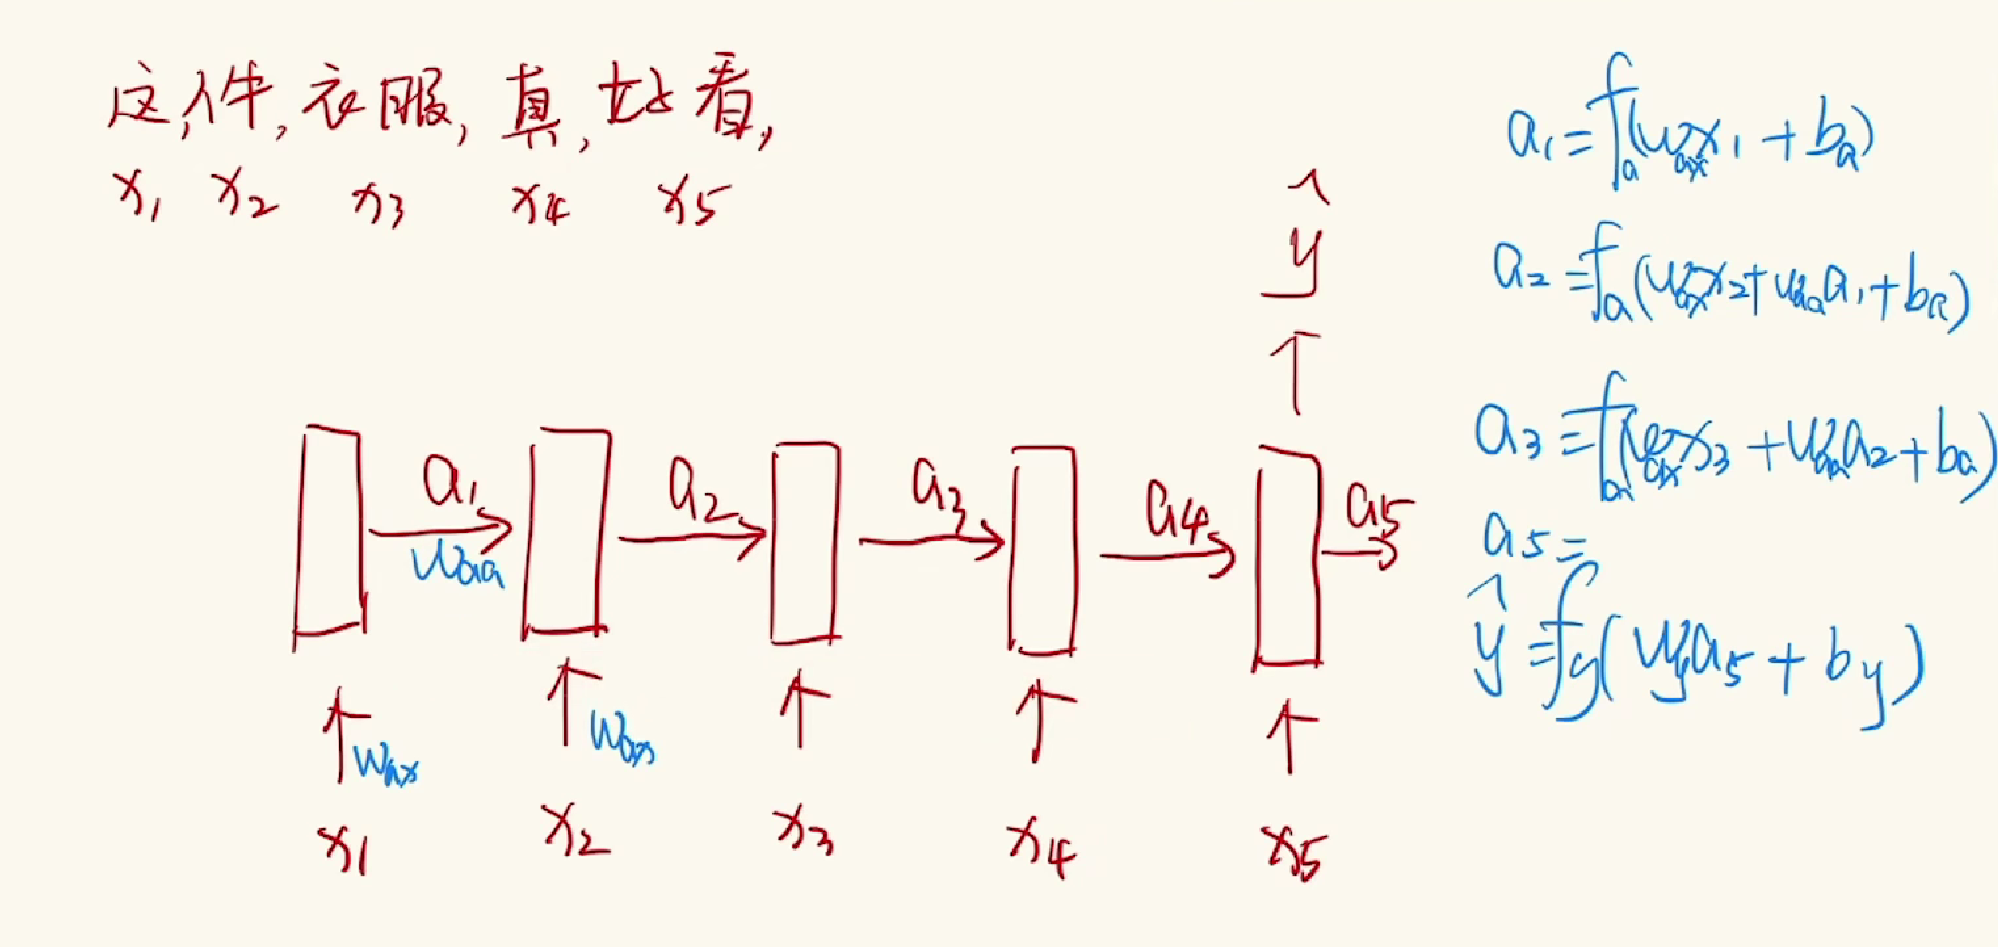 这,件,衣服,真,好看,
x₁ x₂ x₃ x₄ x₅
ŷ
a₁ a₂ a₃ a₄ a₅
Waa
Wax Wax
x₁ x₂ x₃ x₄ x₅
a₁=fₐ(Waxx₁+bₐ)
a₂=fₐ(Waxx₂+Waaa₁+bₐ)
a₃=fₐ(Waxx₃+Waaa₂+bₐ)
a₅=
ŷ=fy(Wya₅+by)